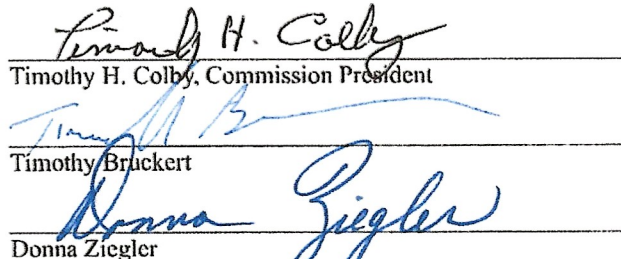 Timothy H. Colby
Timothy H. Colby, Commission President
Timothy Bruckert
Donna Ziegler
Donna Ziegler